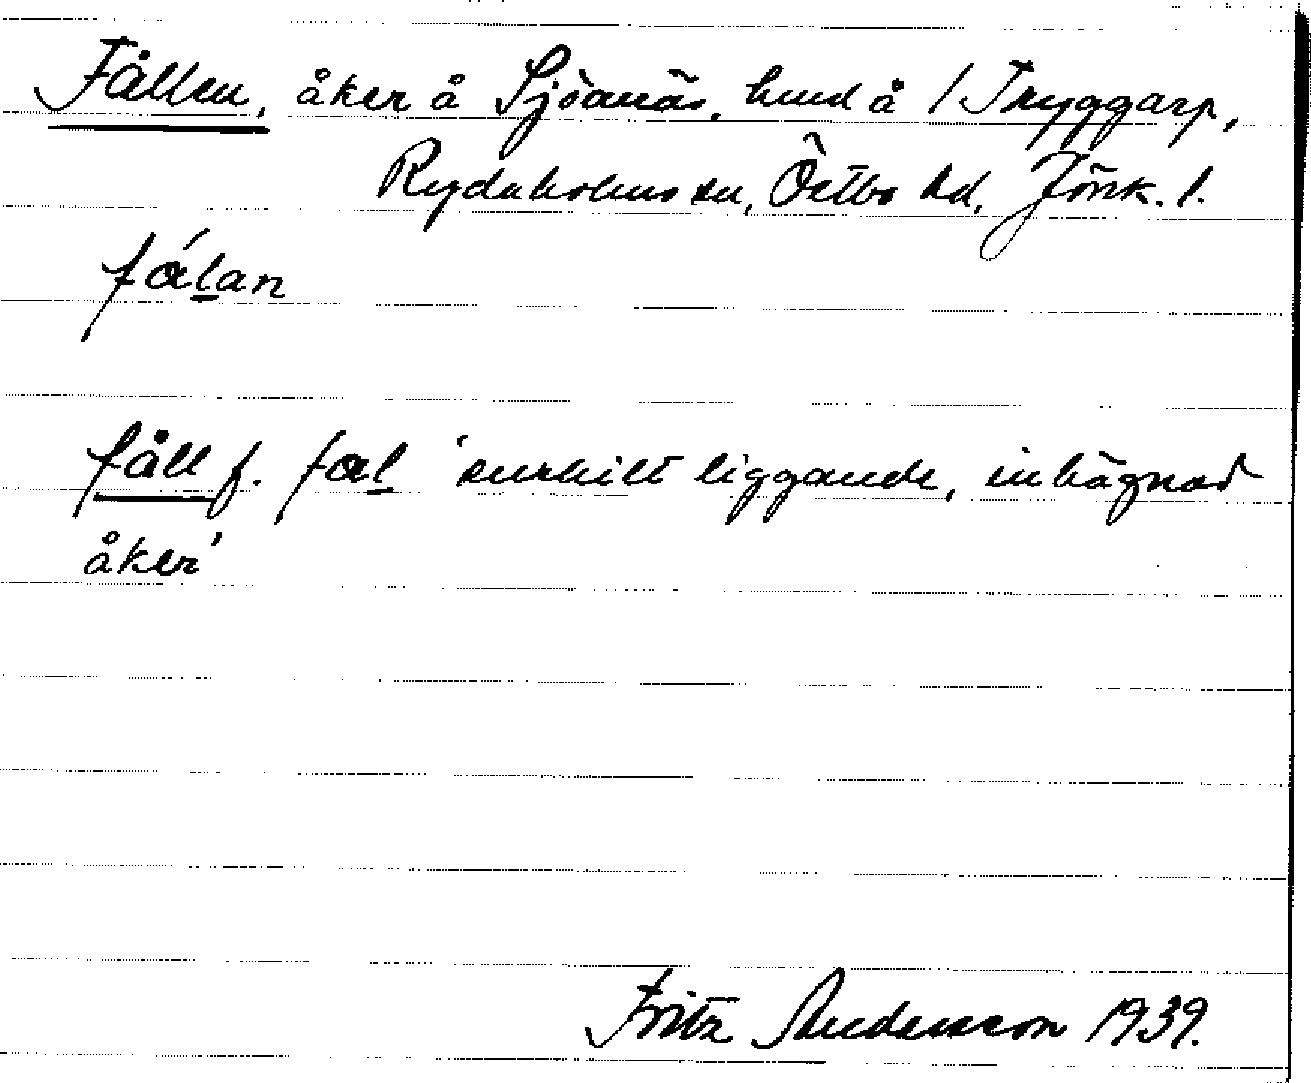 Fållen, åker å Sjöanäs, hmd å 1 Tryggarp,
Rydaholms sn, Östbo hd, Jönk. l.
fålan
fåll f. fål 'enskilt liggande, inhägnad
åker'
Fritz Andersson 1939.